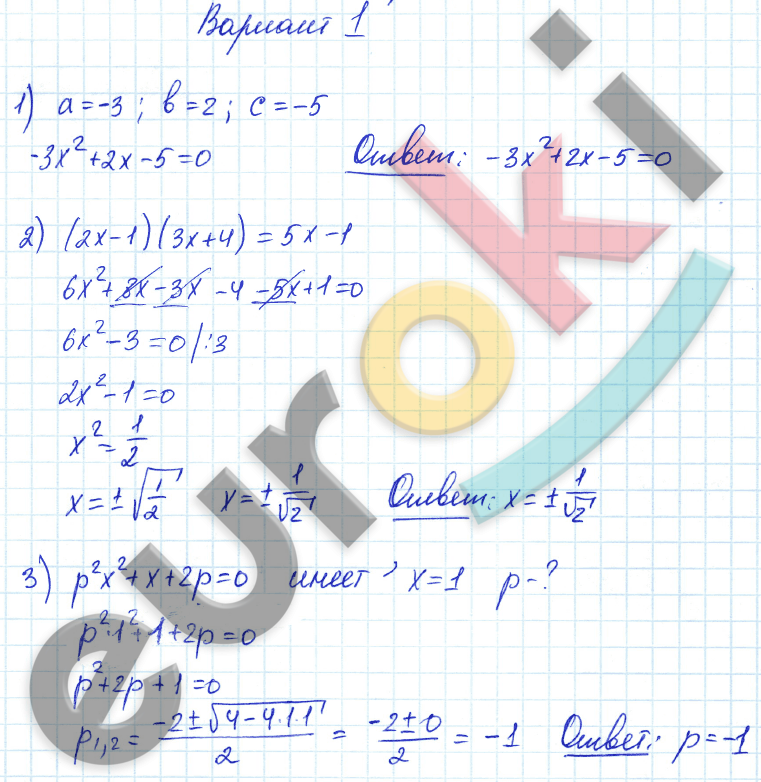 Вариант 1
1) a = -3 ; b = 2 ; c = -5
-3x² + 2x - 5 = 0 Ответ: -3x² + 2x - 5 = 0
2) (2x - 1)(3x + 4) = 5x - 1
6x² + 8x - 3x - 4 - 5x + 1 = 0
6x² - 3 = 0 /:3
2x² - 1 = 0
x² = 1/2
x = ± √(1/2) x = ± 1/√2 Ответ: x = ± 1/√2
3) p²x² + x + 2p = 0 имеет x = 1 p - ?
p²·1² + 1 + 2p = 0
p² + 2p + 1 = 0
p₁,₂ = (-2 ± √(4 - 4·1·1))/2 = (-2 ± 0)/2 = -1 Ответ: p = -1
euroki